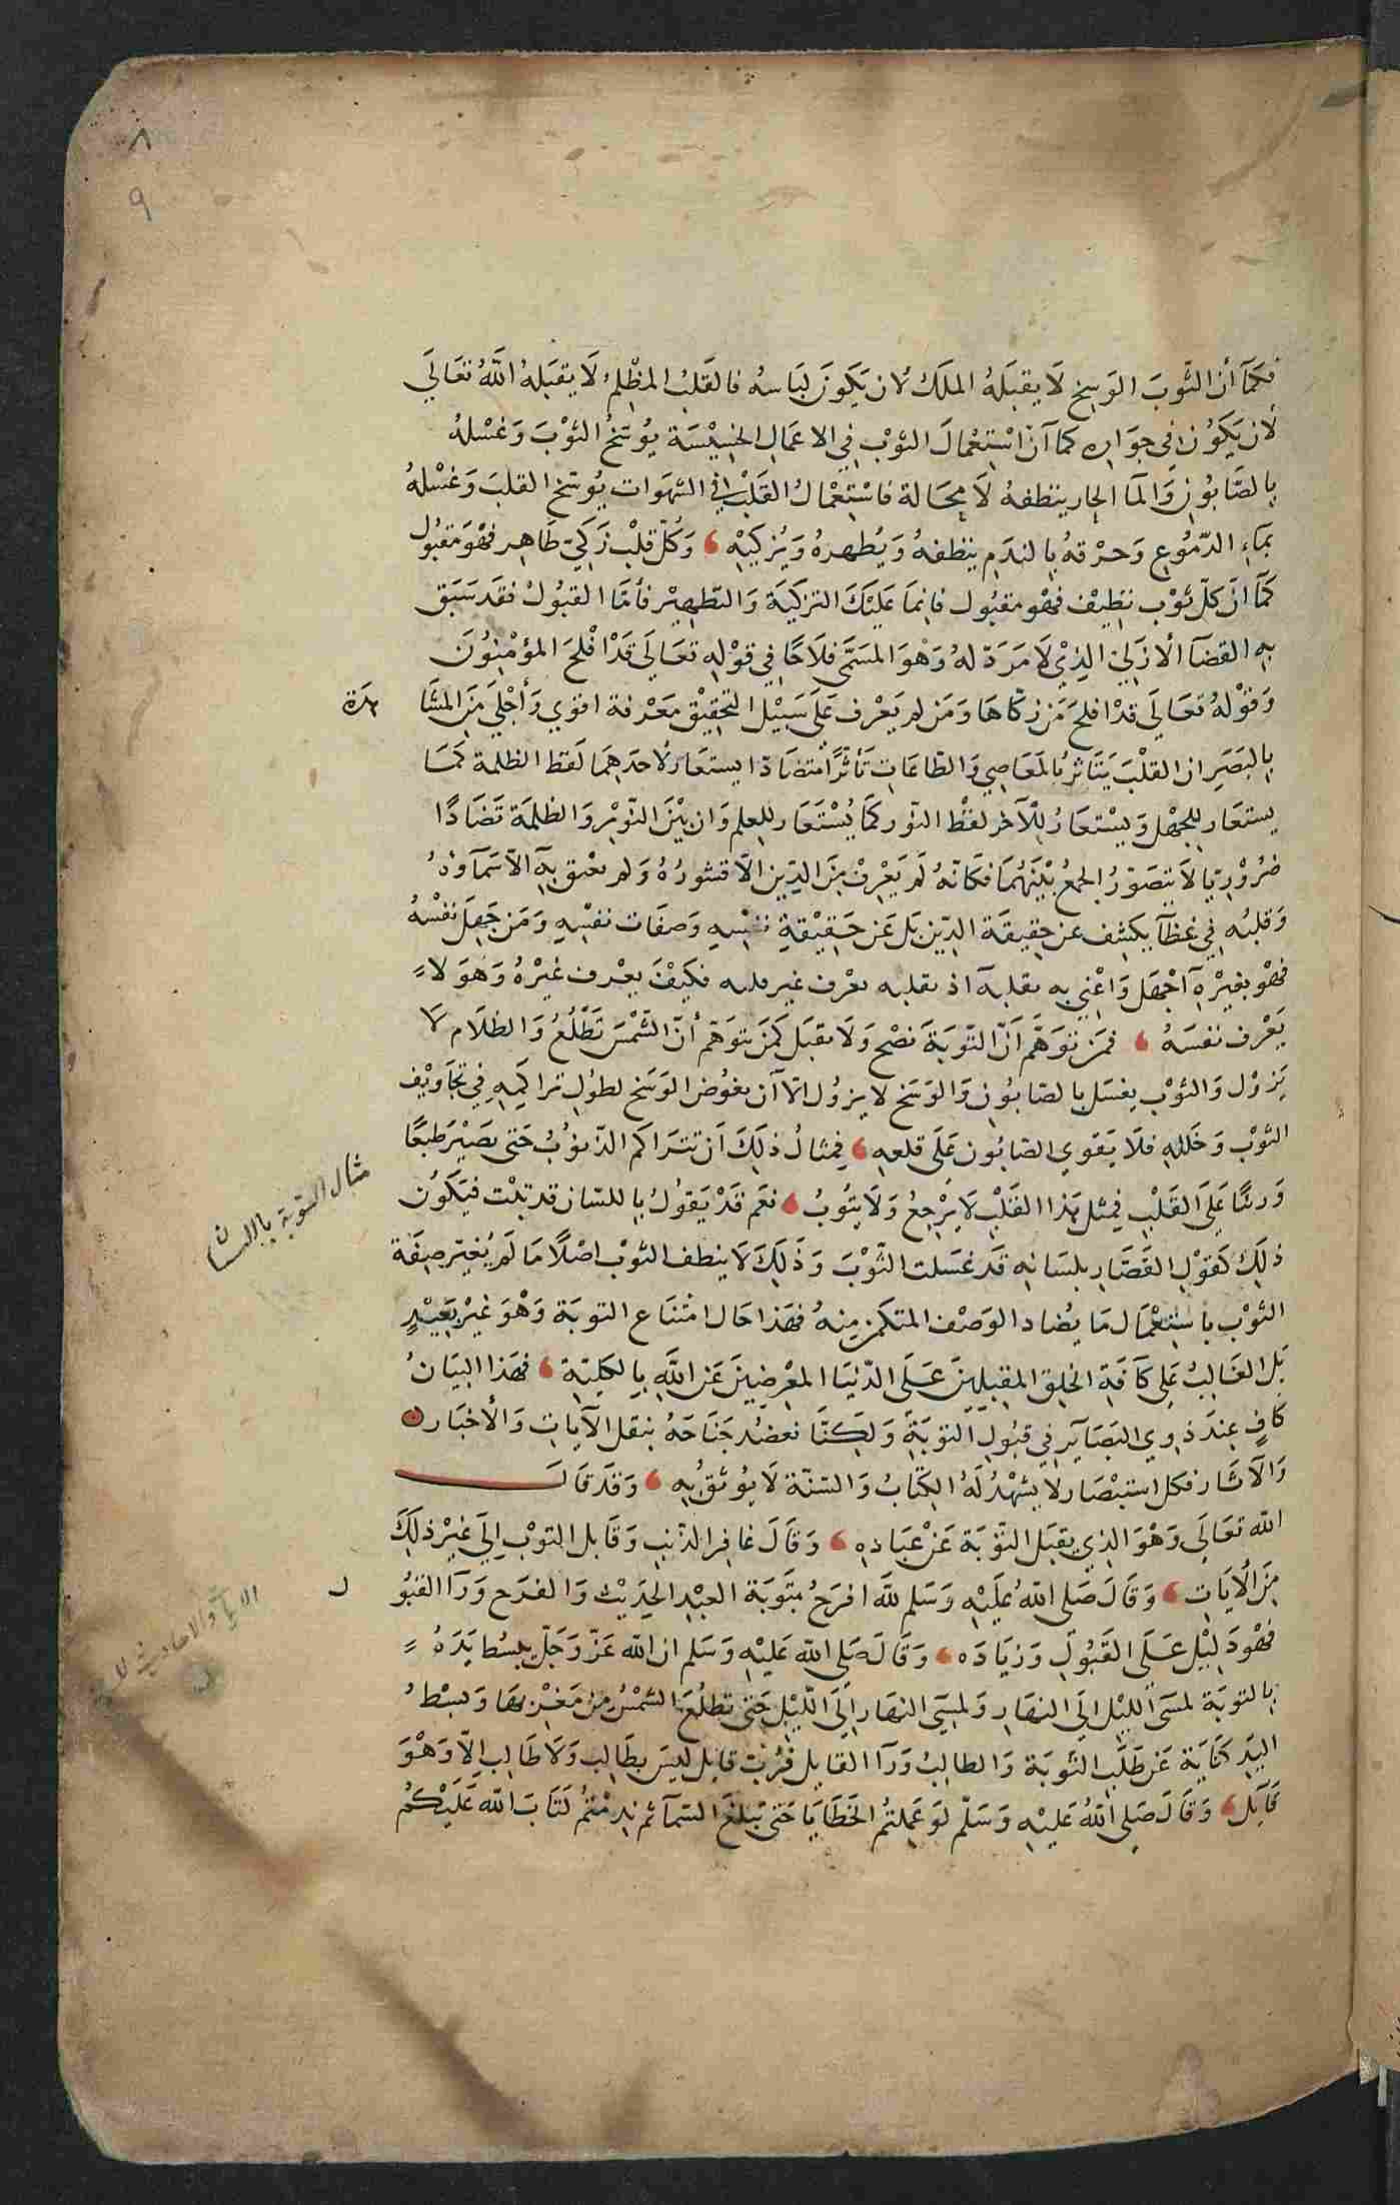 ٨
٩
فكمآ أن الثَّوبَ الوَسِخ لَا يقبَلهُ الملَك لان يَكونَ لبَاسهُ فالقَلبُ المظْلمُ لَا يقبَلهُ اللَّهُ تعَالَى
لأن يَكوُن في جوَاره كما آنّ اسْتِعْمالَ الثوْبِ فِي الاعمَالِ الخسِيْسَة يُوسّخُ الثوْبَ وَغسْلهُ
بالصَّابُونِ وَالمآ الحار ينظفهُ لَا محَالة فاسْتِعْمالُ القَلْبِ في الشهوَات يُوسّخ القلبَ وَغسْلهُ
بمآءِ الدّمُوُع وَحرْقهُ بالندَم ينظفهُ وَيُطهرهُ وَيُزكيْهِ ، وَكُلّ قلْب زَكيّ طَاهِر فهْوَ مَقبُول
كمآ انّ كلّ ثَوْب نظيْف فهْو مقبُول فاِنمَا عَليْكَ التزكيَة وَالتطهيْر فأمّا القبُولُ فقَد سَبَق
بهِ القضآ الأزليّ الذِيْ لَا مَردّ لهُ وَهوَ المسَمَّى فلَاحًا فِي قوْلهِ تعَالَي قَدْ افْلحَ المؤمْنِوُنَ
وَقوْلهُ تعَالَى قدْ افلحَ مَن زكّاهَا وَمَن لم يَعْرف عَلَى سَبيْل التحقِيْق مَعْرفة اقوي وَأجْلَي مِنَ المشَا هَدَة
بِالبَصَرِ ان القلْبَ يَتَاثرُ بالمعَاصِي وَالطّاعَاتِ تَأثُّرًا مُتضَادّا يستعَار لأحدِهمَا لفظ الظلمة كمَا
يستعَار للجهْل وَيسْتعَارُ للآخر لفظْ النّور كمَا يُسْتَعَار للعِلم وَان بيْنَ النّوْرِ وَالظلمَة تَضَادًا
ضرُوْريّا لَا يتصَوّرُ الجمعُ بيْنَهُمَا فكَانّهُ لَم يَعْرفْ مِنَ الدّين الّا قشورهُ وَلم يعْلق بِهِ الّا اسمَاؤهُ
وَقلبُه فِي غطَآ يكثف عن حقِيقَة الدِّين بَل عَن حَقِيْقةِ نفسِهِ وَصفَات نفسِهِ وَمَن جَهلَ نفْسهُ
فهْو بغيْرهِ آجْهَل وَاعْنِي بهِ بقلبهَ اذ بقلبه يعرف غير قلبه فكيْفَ يعْرف غيرْهُ وَهوَ لا
يَعْرف نفسَهُ ، فمَن توَهَّم أنّ التّوبَةَ تصْح وَلَا تقبَل كمَن يتوَهّم أنّ الشّمْسَ تَطّلُعُ وَالظلَام لَا
يَزوْل وَالثوْب يغسَل بالصّابُونِ وَالوَسَخ لا يزوُل الّا آن يغوُض الوَسَخ لطُولِ تراكمِهِ فِي تجَاويْف
الثوْب وَخَللهِ فلَا يَقوي الصّابُون عَلَى قلعهِ ، فمثالُ ذلكَ أن تترَاكم الذّنوُبُ حَتى يصَيْر طَبعًا
وَرينًا عَلَى القَلْبِ فمثل هَذا القَلْبِ لا يَرجِعُ وَلَا يَتُوبُ ، نعَم قَدْ يَقوُلُ باللسَان قد تبْت فيَكوُن
مثال التوبة باللسان
ذلِكَ كقوْلِ القَصّار بلسَانهِ قَد غسَلت الثّوْبَ وَذَلِكَ لَا ينظف الثوْب اصْلًا مَا لَم يُغير صِفَة
الثوْب باسْتعْمال مَا يُضاد الوَصْف المتكمن مِنهُ فهَذا حَال امْتنَاع التوبَة وَهْوَ غيْر بَعِيْدٍ
بَل الغَالبُ عَلَى كآفَة الخلق المقبلِيْنَ عَلَى الدّنيَا المعْرضِيْنَ عَن اللَّهِ بالكليّة ، فهَذا البيَانُ
كافٍ عِندَ ذوي البَصَآير في قبُول التوبَة وَلَكِنّا نعضدُ جَنَاحَهُ بنقل الآيات وَالأخْبَار
وَالآثَار فكل استبْصَار لا يشهْدُ لَهُ الكتَابُ وَالسّنّة لَا يُوثقُ بهِ ، وَقَد قَالَ
اللّه تعَالَى وَهْوَ الذِي يقبَل التّوْبَة عَن عبَادهِ ، وَقَالَ غافِر الذّنب وَقَابل التوْب اِلَى غيْر ذلكَ
مِنَ الآيَاتِ ، وَقَالَ صَلى اللّهُ عَليْهِ وَسَلم للَّه افرَحُ بتَوبَة العبْدِ الحدِيْث وَالفرَح وَرَآ القبُو ل
الايات والاحاديث
فهْودَليْل عَلَى القَبُولِ وَزيَادَه ، وَقَالَ صَلى اللّه عَليْهِ وَسَلم ان اللّه عَزّ وَجَلّ يبسُط يَدَهُ
بالتوبَة لمسَى الليْل اِلَى النهَار وَلمسِيَ النهَار اِلَى اللّيْل حَتى تطلُعَ الشمْسُ مِن مَغرْبهَا وَبسْطُ
اليَد كنايَة عَن طلَب التّوبَة وَالطالِبُ وَرَآ القابل فرُبّ قابل ليسَ بطَالبٍ وَلَا طَالِب الّا وَهْوَ
قابَل ، وَقَالَ صَلى اللّهُ عَليْهِ وَسَلّم لَو عَملتمُ الخَطَايَا حَتى تبْلغَ السّمآ ثم ندِمْتمُ لتَابَ اللّه عَليْكُم